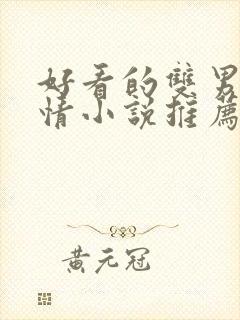 好看的雙男
情小說推薦
黃元冠